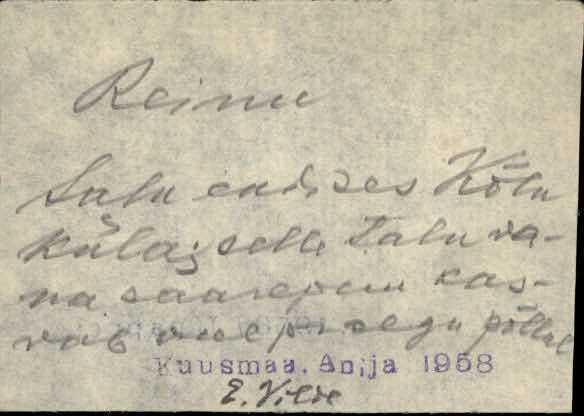 Reinu
Talu endises Kõlu
külas; selle talu va-
na saarepuu kas-
vab praegu põllul
Kuusmaa. Anija 1958
E. Vilde